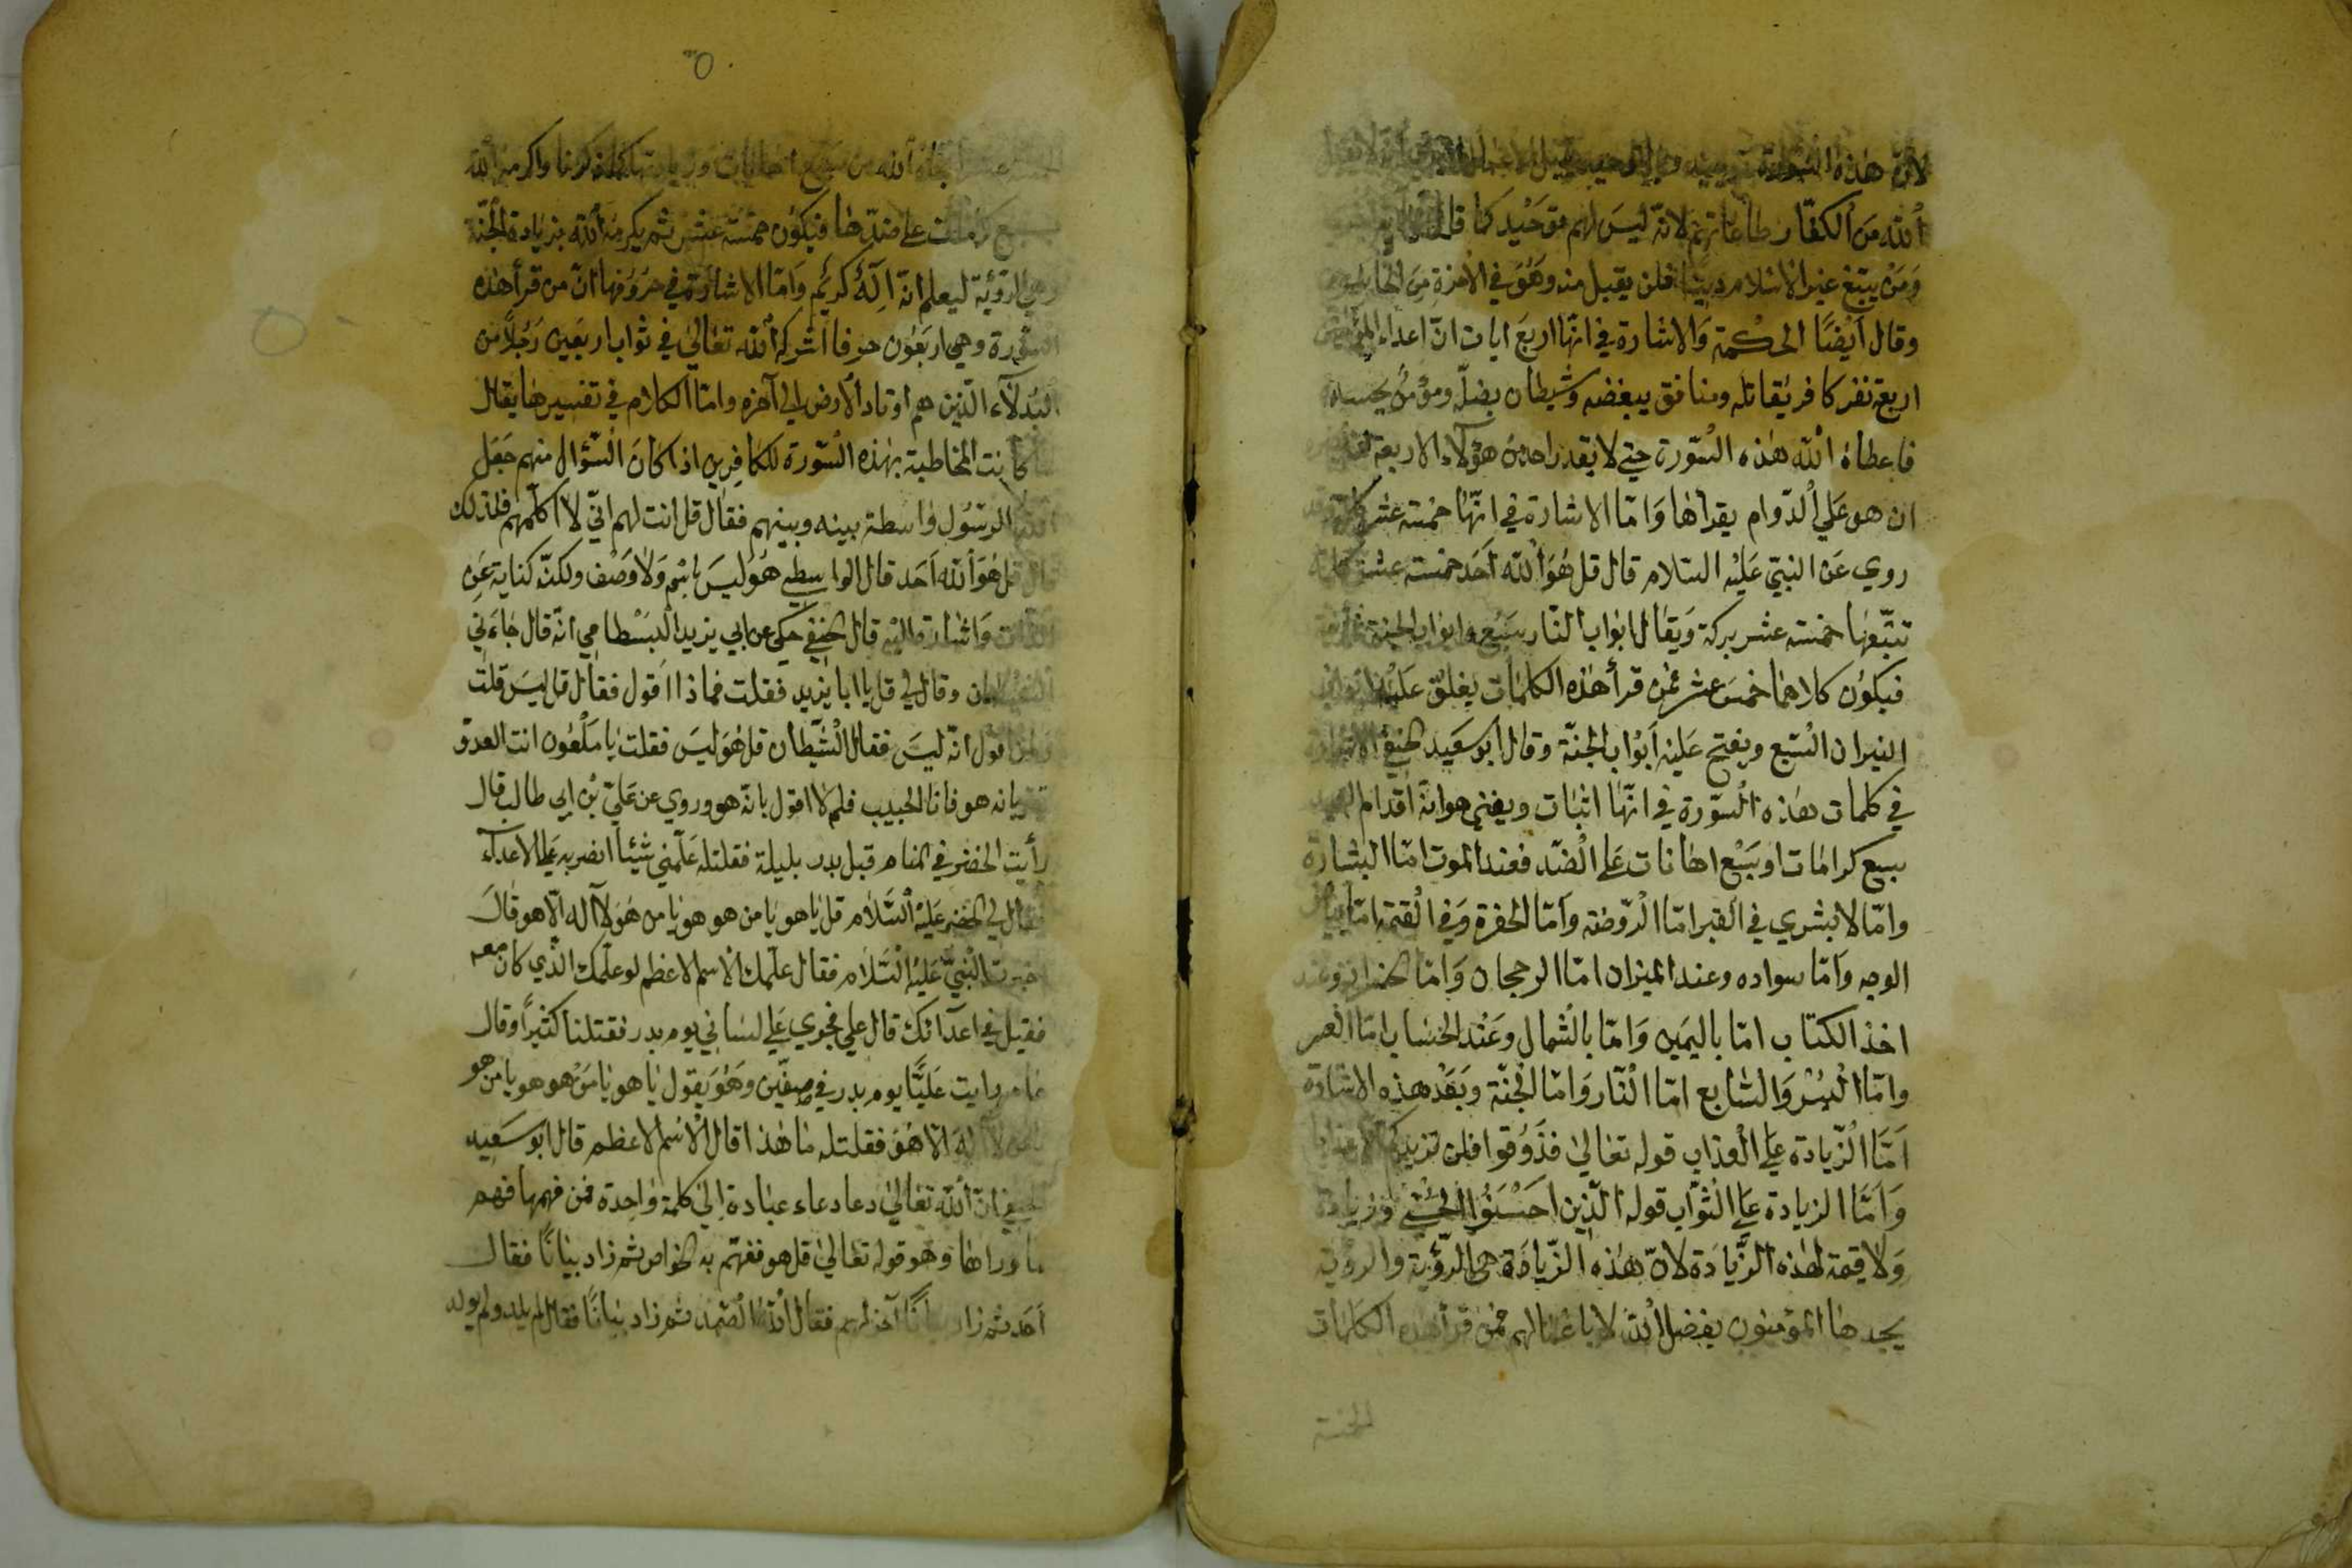 لانّ هذه السّورة
اللّه من الكفّار طاعاتهم لانّه ليس لهم توحيد كما قال
ومن يبتغ غير الاسلام دينا فلن يقبل منه وهو في الاخرة من الخاسرين
وقال ايضًا الحكمة والاشارة في انّها اربع ايات انّ اعداء المؤمن
اربعة نفر كافر يقاتله ومنافق يبغضه وشيطان يضلّه ومؤمن يحسده
فاعطاه اللّه هذه السّورة حتي لا يقدر احد من هؤلاء الاربعة
ان هو علي الدّوام يقراها وامّا الاشارة في انّها خمسة عشر كلمة
روي عن النبيّ عليه السلام قال قل هو اللّه احد خمسة عشر كلمة
تتبّعها خمسة عشر بركة ويقال ابواب النّار سبع وابواب الجنة ثمانية
فيكون كلاهما خمس عشر فمن قرأ هذه الكلمات يغلق عليه ابواب
النيران السّبع ويفتح عليه ابواب الجنّة وقال ابو سعيد الحنفي
في كلمات هذه السّورة في انّها اثبات ويفني هوانه اقدام
سبع كرامات او سبع اهانات علي الضّد فعند الموت امّا البشارة
وامّا لا بشري في القبر امّا الرّوضه وامّا الحفرة وفي القيمة امّا بياض
الوجه وامّا سواده وعند الميزان امّا الرجحان وامّا الخسران وعند
اخذ الكتاب امّا باليمين وامّا بالشمال وعند الحساب امّا العسر
وامّا اليسر والسّابع امّا النّار وامّا الجنّة وبعد هذه الاشارة
امّا الزّيادة علي العذاب قوله تعالي فذوقوا فلن نزيدكم الا عذابا
وامّا الزيادة علي الثوّاب قوله الّذين احسنوا الحسني وزيادة
ولا قيمة لهذه الزّيادة لانّ هذه الزّيادة هي الرّؤية والرؤية
يجدها المؤمنون بفضل اللّه لا باعمالهم فمن قرأ هذه الكلمات
الخمسة
٥
الخمسة عشر نجاه اللّه من سبع اهانات وزيادتها كما ذكرنا واكرمه اللّه
بسبع كرامات علي ضدّها فيكون خمسة عشر ثم يكرمه اللّه بزيادة الجنّة
وهي الرؤية ليعلم انّه اله كريم وامّا الاشارة في حروفها انّ من قرأ هذه
السّورة وهي اربعون حرفا اشركه اللّه تعالي في ثواب اربعين رجلاً من
البدلآء الّذين هم اوتاد الارض الي آخره وامّا الكلام في تفسيرها يقال
كانت المخاطبة بهذه السّورة للكافرين اذا كان السّؤال منهم جعل
الرسول واسطة بينه وبينهم فقال قل انت لهم انّي لا اكلّمهم فلذلك
قال قل هو اللّه احد قال الواسطي هو ليس باسم ولا وصف ولكنّه كناية عن
الذّات واشارة اليه قال الحنفي حكي عن ابي يزيد البسطامي انّه قال جاءني
الشيطان وقال لي قل يا ابا يزيد فقلت فماذا اقول فقال قل ليس قلت
اقول انّه ليس فقال الشّيطان قل هو ليس فقلت يا ملعون انت العدوّ
تقر بانه هو فانا الحبيب فلم لا اقول بانّه هو وروي عن عليّ بن ابي طالب قال
رأيت الخضر في المنام قبل بدر بليلة فقلت له علّمني شيئا انصر به علي الاعدآء
فقال لي الخضر عليه السّلام قل يا هو يا من هو هو يا من هو لا آله الّا هو قال
اخبرت النبيّ عليه السّلام فقال علّمك الاسم الاعظم لو علّمك الّذي كان معه
فقيل في اعدآئك قال علي فجري علي لساني يوم بدر فقتلنا كثيرًا وقال
رايت عليًّا يوم بدر في صفّين وهو يقول يا هو يا من هو هو يا من هو
لا اله الّا هو فقلت له ما هذا قال الاسم الاعظم قال ابو سعيد
الحنفي انّ اللّه تعالي دعا دعاء عباده الي كلمة واحدة فمن فهمها فهم
ما وراها وهو قوله تعالي قل هو ففهم به الخواص ثم زاد بيانًا فقال
احد ثم زاد بيانًا آخر لهم فقال اللّه الصّمد ثم زاد بيانًا فقال لم يلد ولم يولد